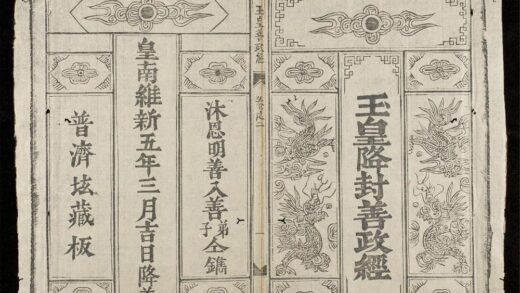 玉皇降封善政經
玉皇善政經
一
沐恩明善入善弟子仝鐫
皇南維新五年三月吉日降
普濟坛藏板